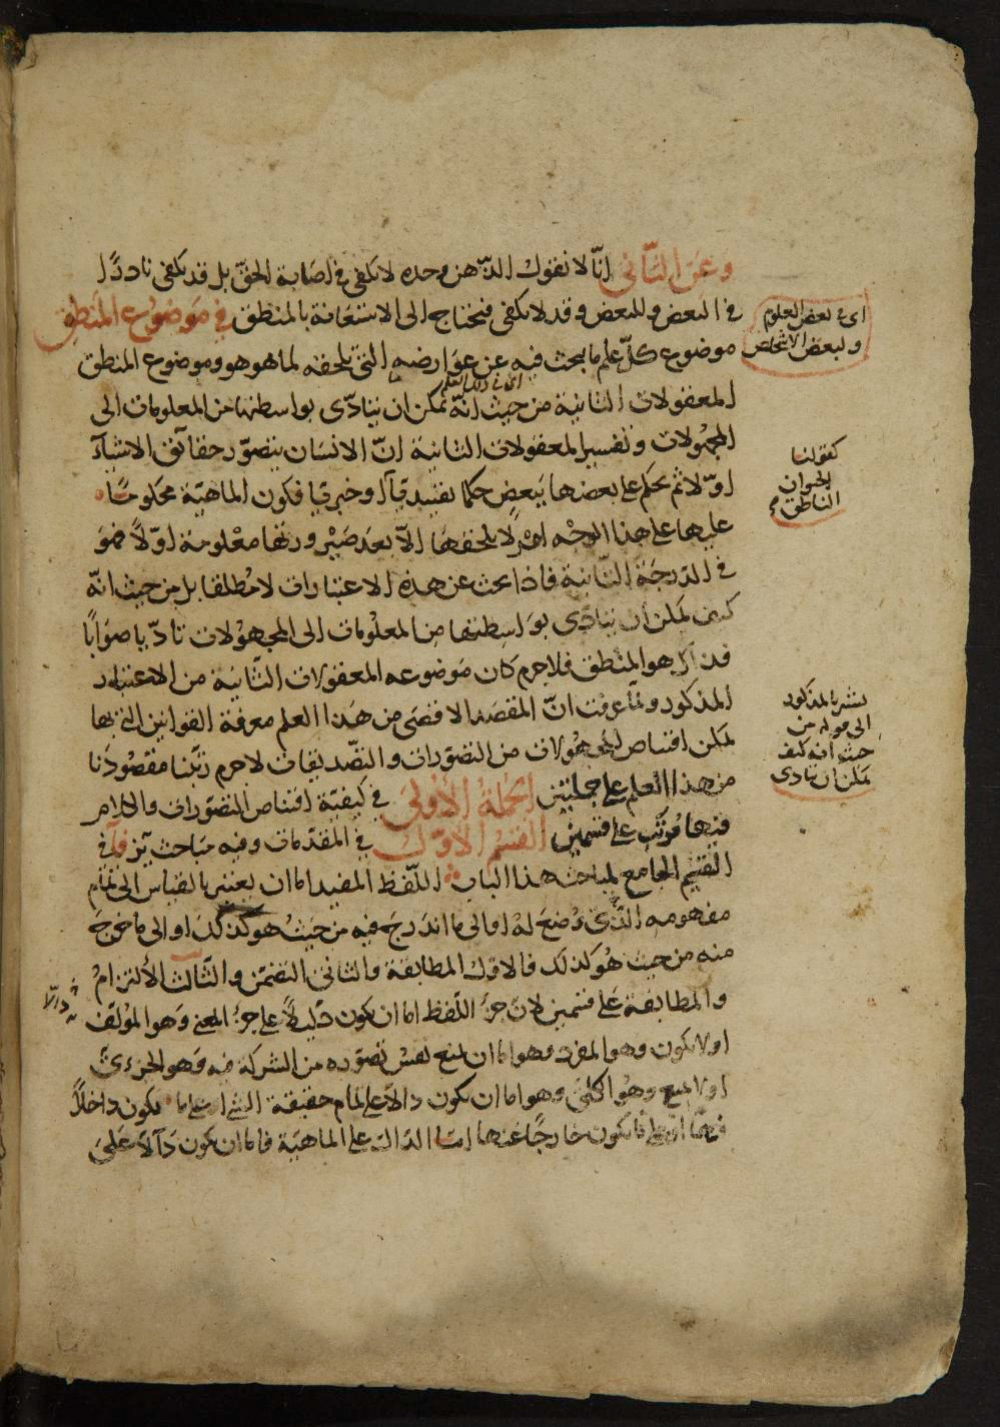 وعن الثاني انا لا نقول الذهن وحده لا يكفي في اصابة الحق بل قد يكفي نادرا
في البعض وللبعض وقد لا يكفي فيحتاج الى الاستعانة بالمنطق في موضوع المنطق
موضوع كل علم ما يبحث فيه عن عوارضه التي تلحقه لما هو هو وموضوع المنطق
اي في ذلك العلم
المعقولات الثانية من حيث انه يمكن ان يتادى بواسطتها من المعلومات الى
المجهولات وتفسير المعقولات الثانية ان الانسان يتصور حقائق الاشياء
اولا ثم يحكم على بعضها ببعض حكما تقييديا او خبريا فكون الماهية محكوما
عليها على هذا الوجه امر لا يلحقها الا بعد صيرورتها معلومة اولا فهو
في الدرجة الثانية فاذا بحث عن هذه الاعتبارات لا مطلقا بل من حيث انه
كيف يمكن ان يتادى بواسطتها من المعلومات الى المجهولات تاديا صوابا
فذلك هو المنطق فلا جرم كان موضوعه المعقولات الثانية من الاعتبار
المذكور ولما عرفت ان المقصد الاقصى من هذا العلم معرفة القوانين التي بها
يمكن اقتناص المجهولات من التصورات والتصديقات لا جرم رتبنا مقصودنا
من هذا العلم على جملتين الجملة الاولى في كيفية اقتناص التصورات والكلام
فيها مرتب على قسمين القسم الاول في المقدمات وفيه مباحث
التقسيم الجامع لمباحث هذا الباب اللفظ المفيد اما ان يعتبر بالقياس الى تمام
مفهومه الذي وضع له او الى ما اندرج فيه من حيث هو كذلك او الى ما خرج
منه من حيث هو كذلك فالاول المطابقة والثاني التضمن والثالث الالتزام
والمطابقة على قسمين لان جزء اللفظ اما ان يكون دليلا على جزء المعنى وهو المؤلف
اولا يكون وهو المفرد وهو اما ان يمنع نفس تصوره من الشركة فيه وهو الجزءي
اولا يمنع وهو الكلي وهو اما ان يكون دالا على تمام حقيقة الشيء او على ما يكون داخلا
فيها او على ما يكون خارجا عنها اما الدال على الماهية فاما ان يكون دالا على
اي في بعض العلوم
ولبعض الاشخاص
كقولنا
الحيوان
الناطق
بشرط المذكور
الى قوله من
حيث انه كيف
يمكن ان يتادى
دالا